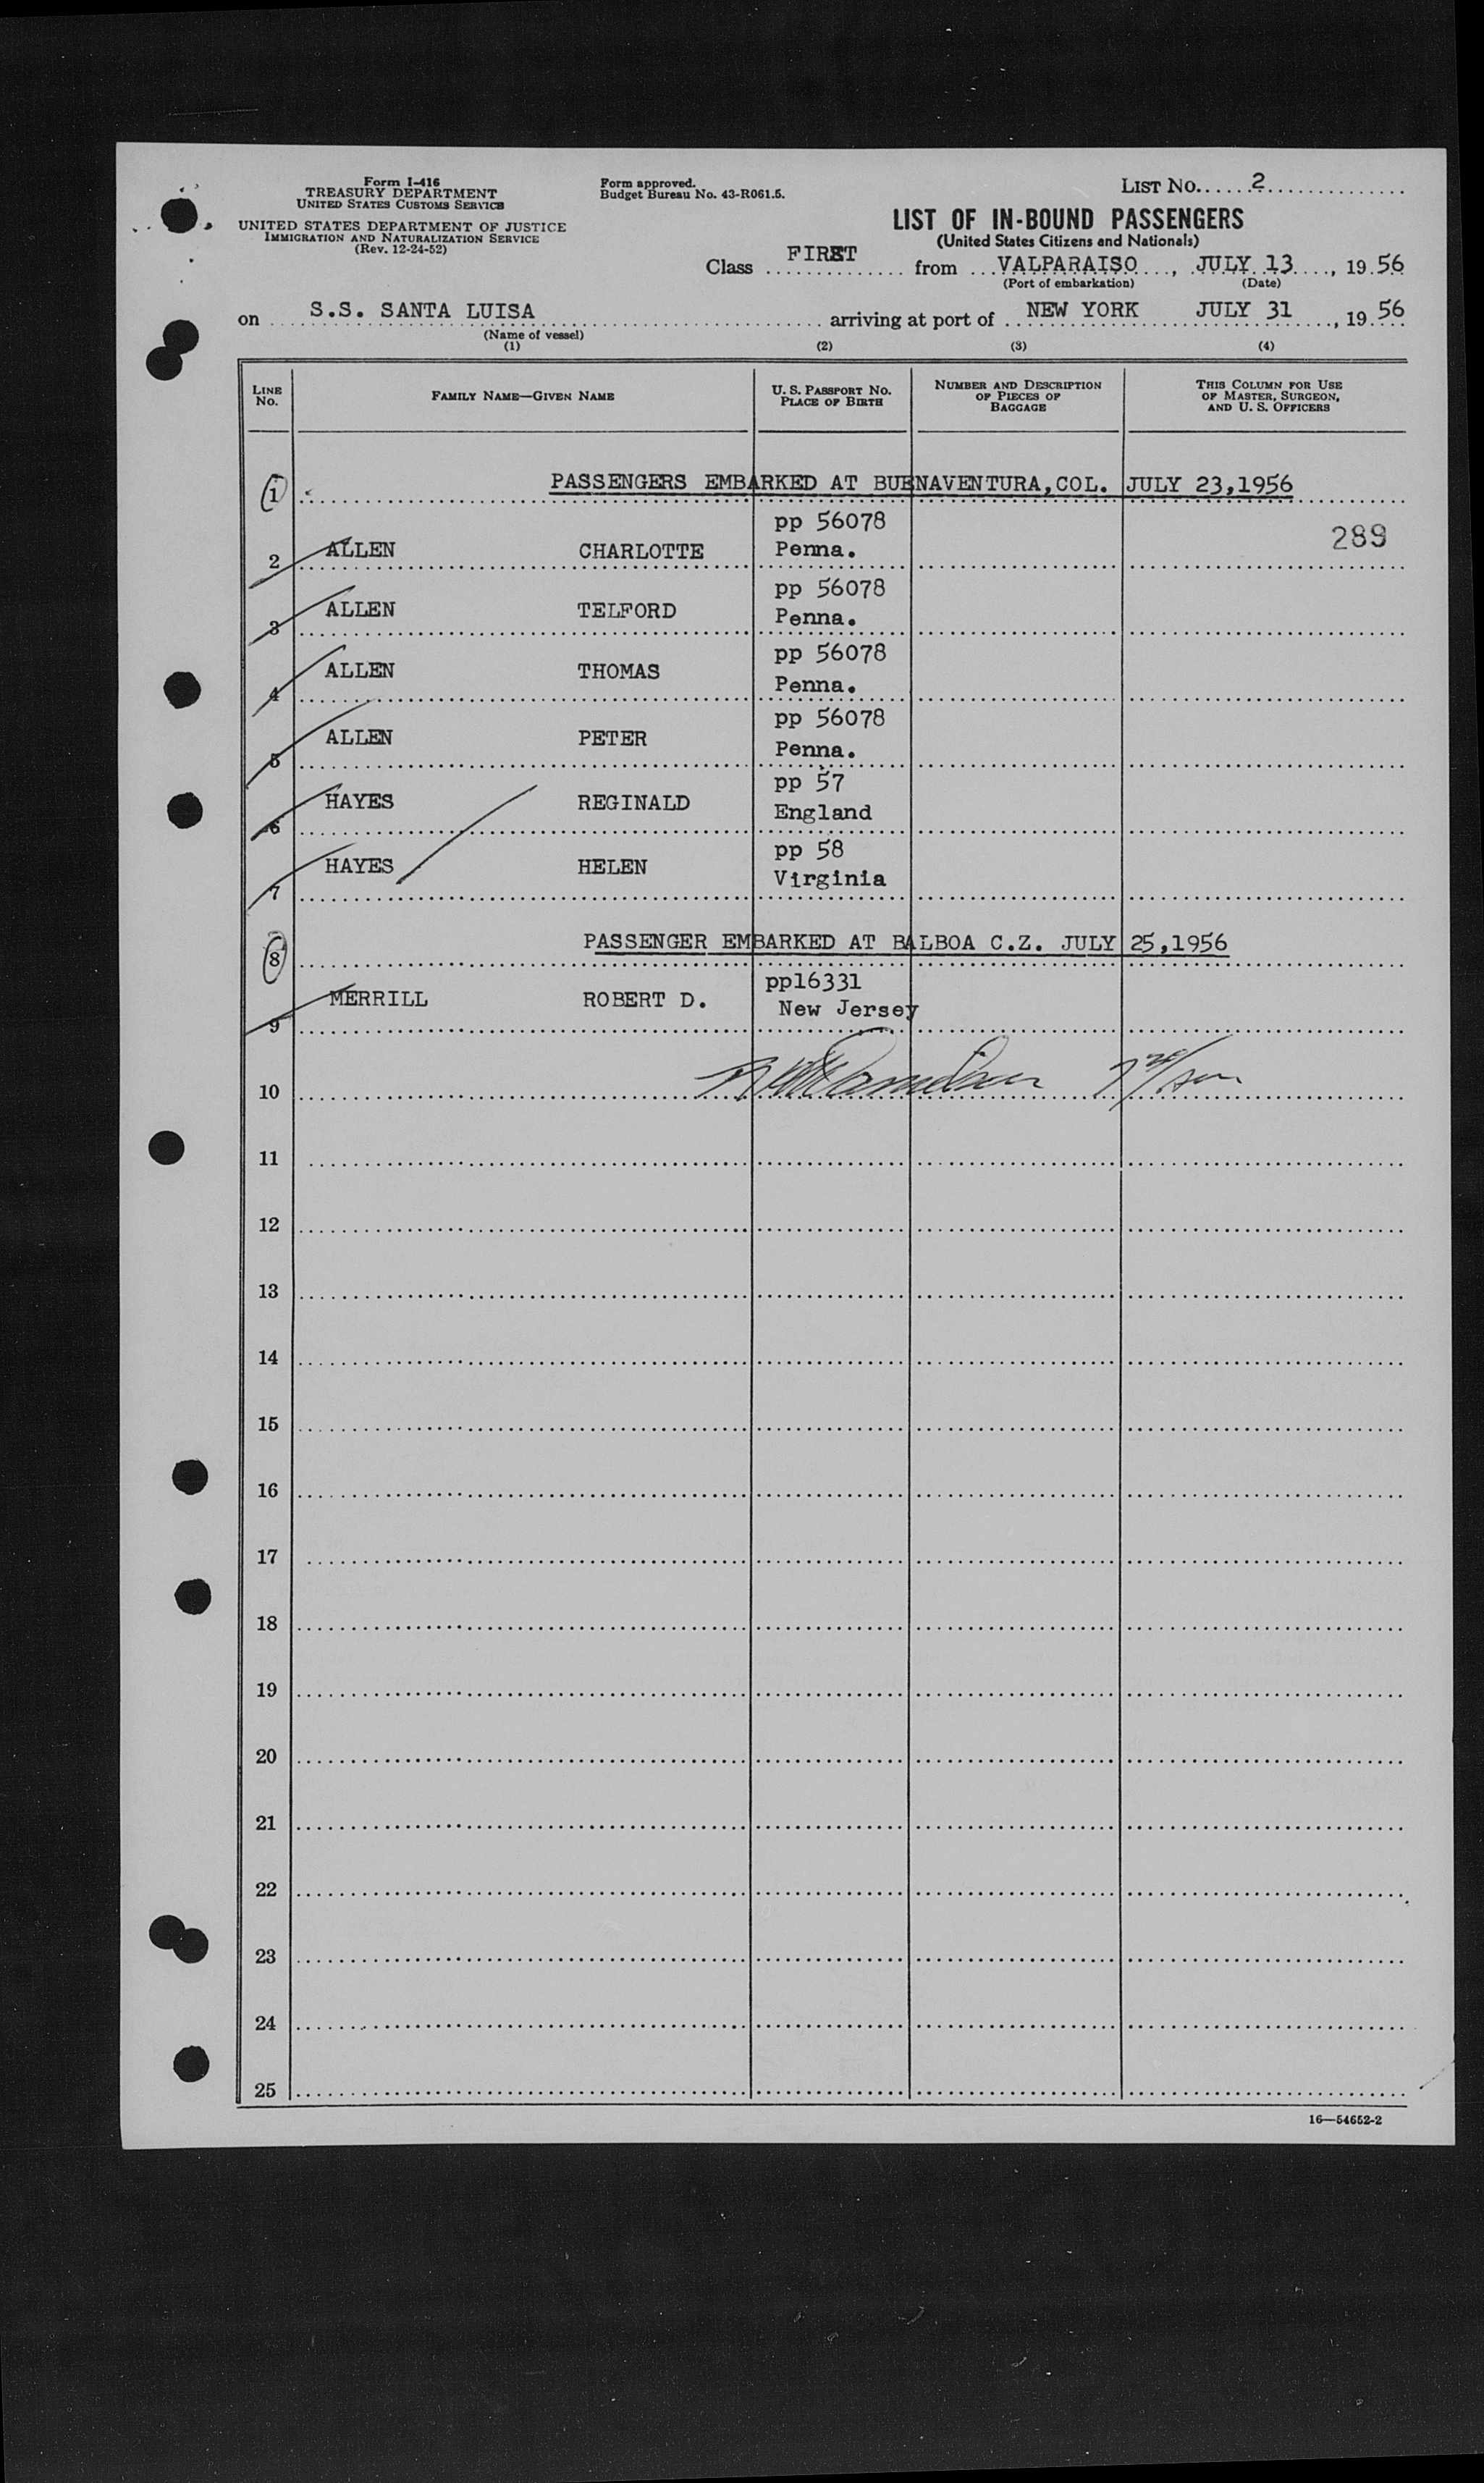 Form I-416
TREASURY DEPARTMENT
UNITED STATES CUSTOMS SERVICE
UNITED STATES DEPARTMENT OF JUSTICE
IMMIGRATION AND NATURALIZATION SERVICE
(Rev. 12-24-52)
Form approved.
Budget Bureau No. 43-R061.5.
LIST NO. 2
LIST OF IN-BOUND PASSENGERS
(United States Citizens and Nationals)
Class FIRST from VALPARAISO, JULY 13, 19 56
(Port of embarkation) (Date)
on S.S. SANTA LUISA arriving at port of NEW YORK JULY 31, 19 56
(Name of vessel)
(1) (2) (3) (4)
LINE NO. FAMILY NAME—GIVEN NAME U. S. PASSPORT NO. PLACE OF BIRTH NUMBER AND DESCRIPTION OF PIECES OF BAGGAGE THIS COLUMN FOR USE OF MASTER, SURGEON, AND U. S. OFFICERS
1 PASSENGERS EMBARKED AT BUENAVENTURA,COL. JULY 23,1956
2 ALLEN CHARLOTTE pp 56078 Penna. 289
3 ALLEN TELFORD pp 56078 Penna.
4 ALLEN THOMAS pp 56078 Penna.
5 ALLEN PETER pp 56078 Penna.
6 HAYES REGINALD pp 57 England
7 HAYES HELEN pp 58 Virginia
8 PASSENGER EMBARKED AT BALBOA C.Z. JULY 25,1956
9 MERRILL ROBERT D. pp16331 New Jersey
10
11
12
13
14
15
16
17
18
19
20
21
22
23
24
25
16—54652-2